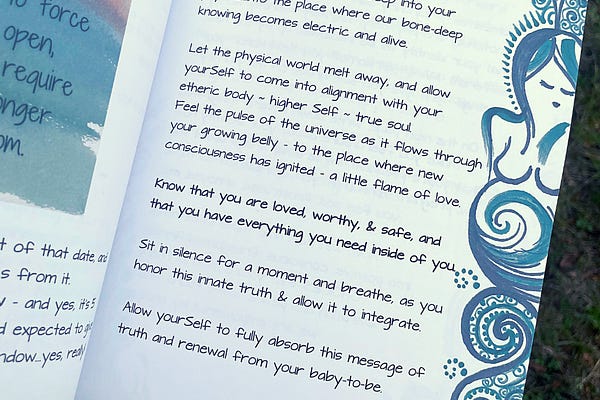 to force
open,
require
onger
om.
t of that date, and
s from it.
- and yes, it's 5
d expected to
ndow...yes, really
into your
to the place where our bone-deep
knowing becomes electric and alive.
Let the physical world melt away, and allow
yourSelf to come into alignment with your
etheric body ~ higher Self ~ true soul.
Feel the pulse of the universe as it flows through
your growing belly - to the place where new
consciousness has ignited - a little flame of love.
Know that you are loved, worthy, & safe, and
that you have everything you need inside of you.
Sit in silence for a moment and breathe, as you
honor this innate truth & allow it to integrate.
Allow yourSelf to fully absorb this message of
truth and renewal from your baby-to-be.